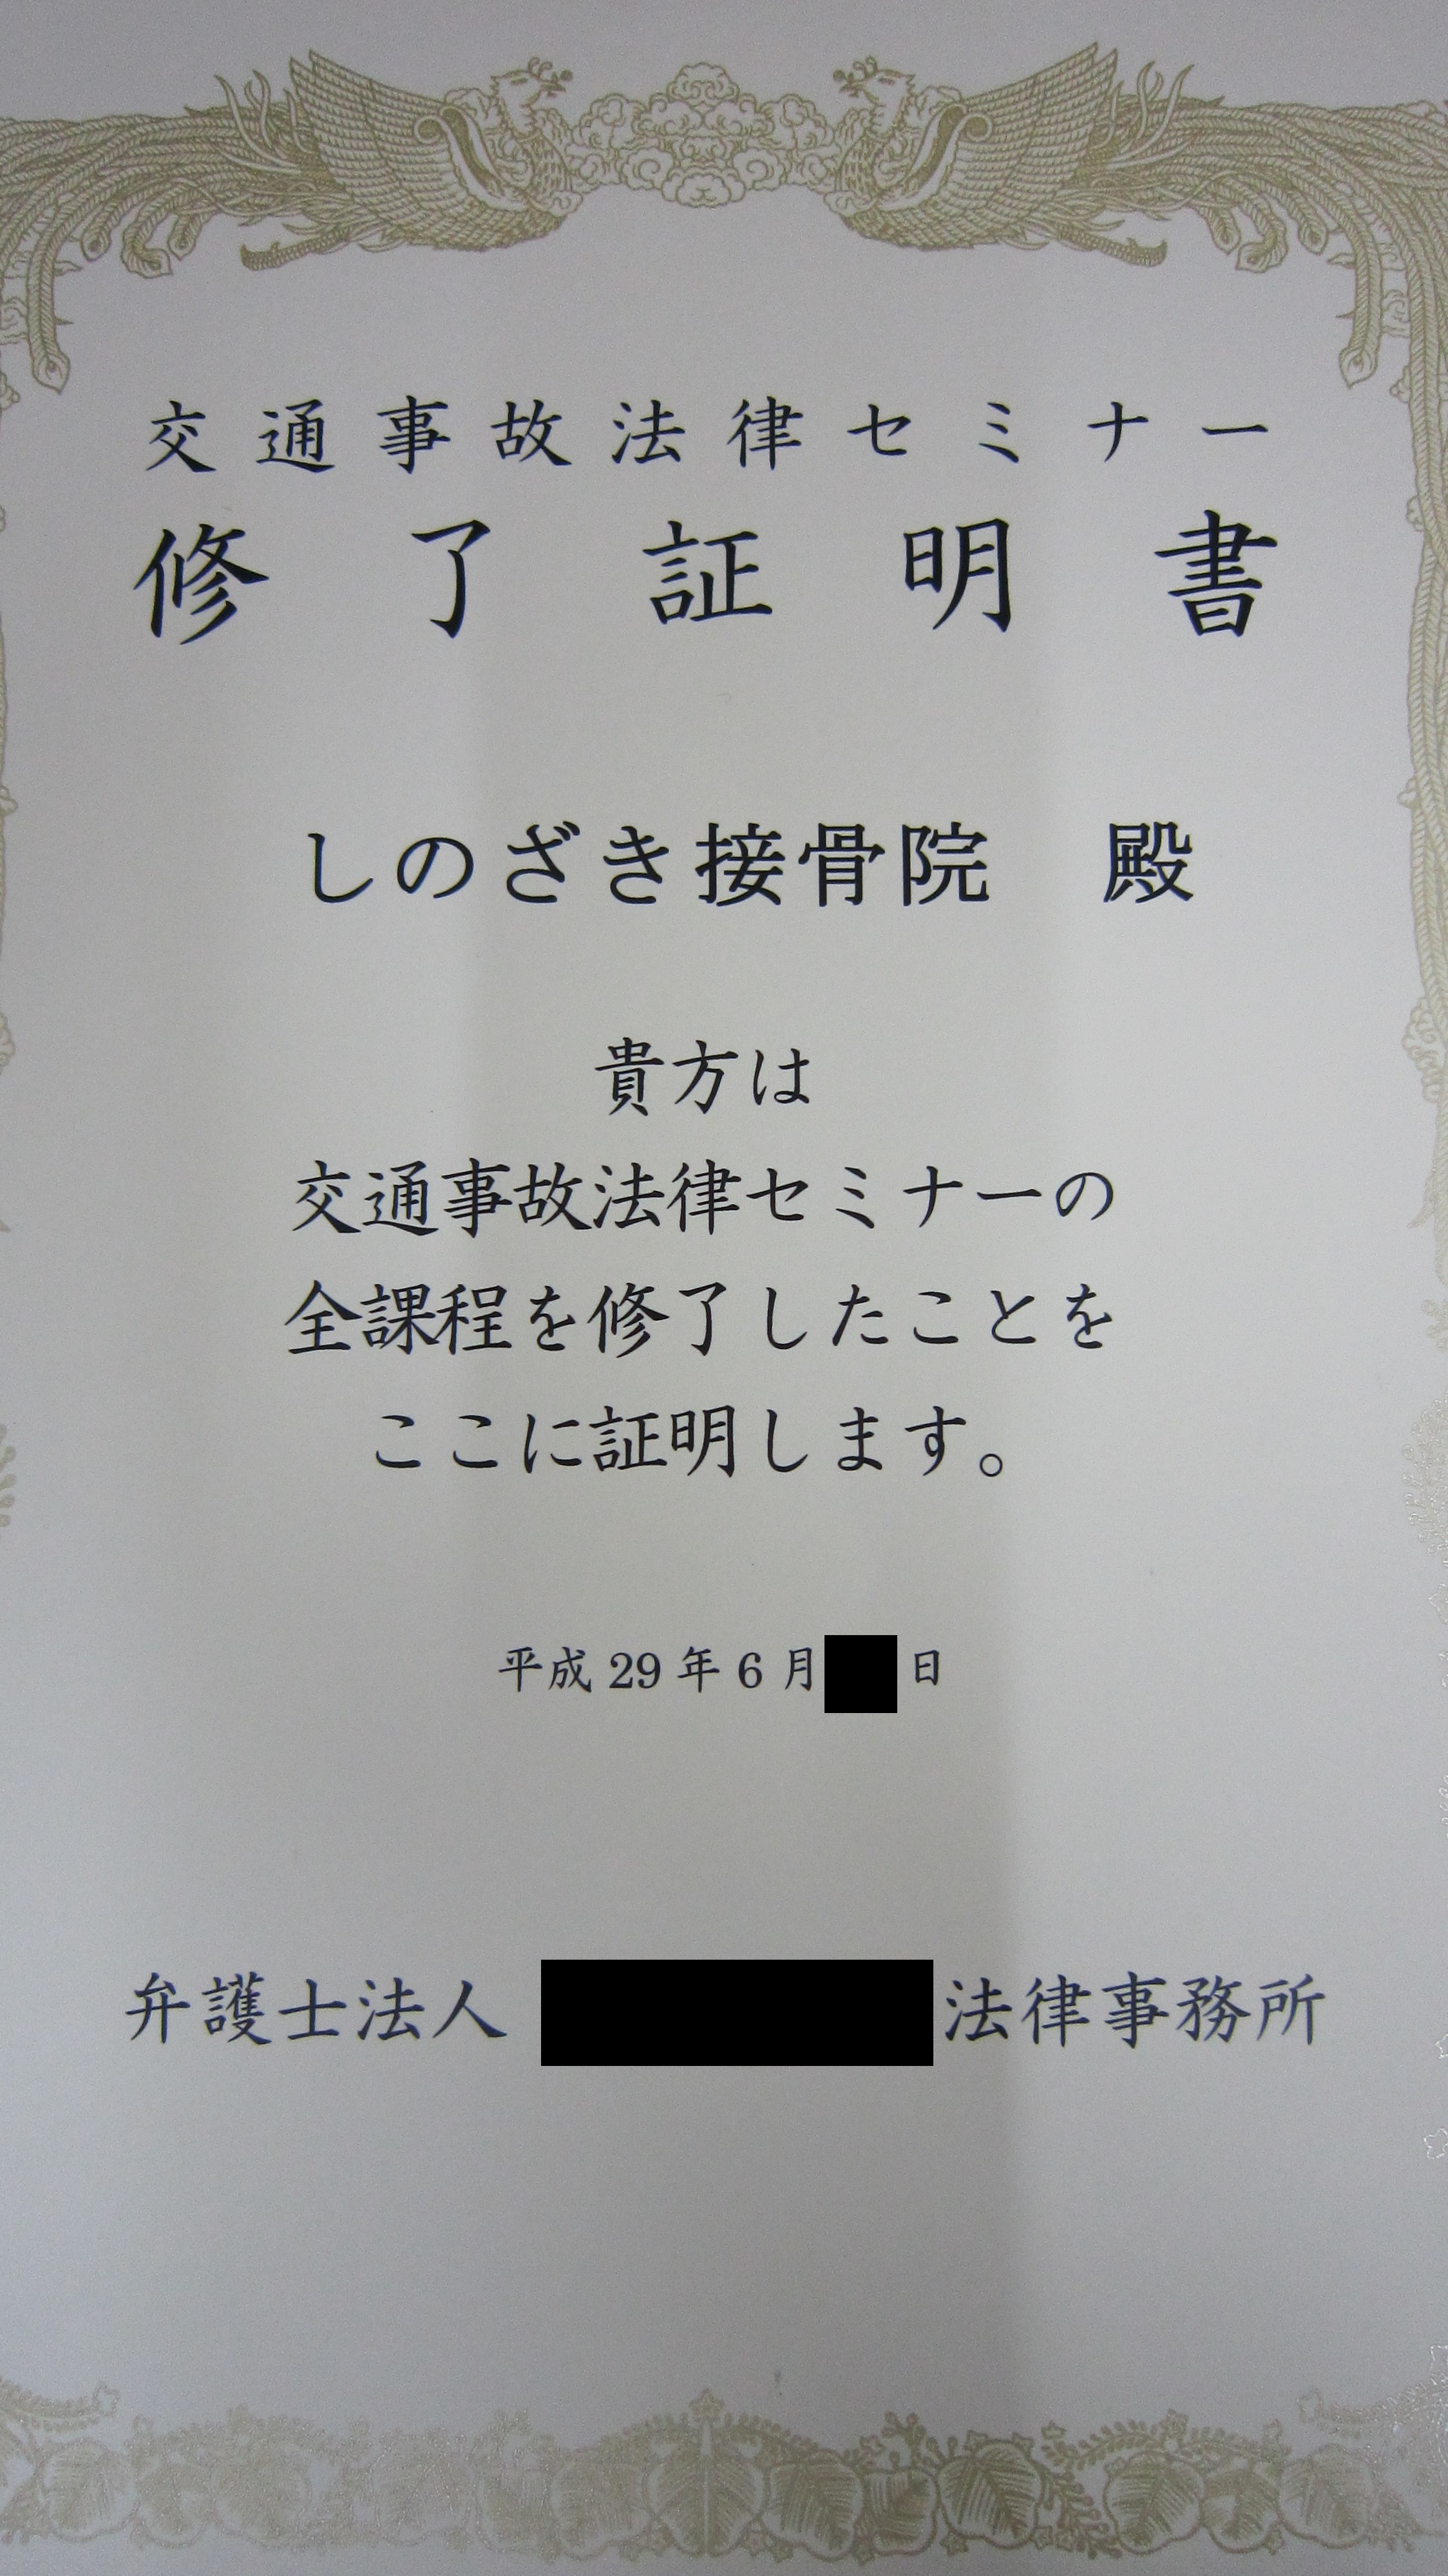 交通事故法律セミナー
修了証明書
しのざき接骨院　殿
貴方は
交通事故法律セミナーの
全課程を修了したことを
ここに証明します。
平成 29 年 6 月 日
弁護士法人 法律事務所